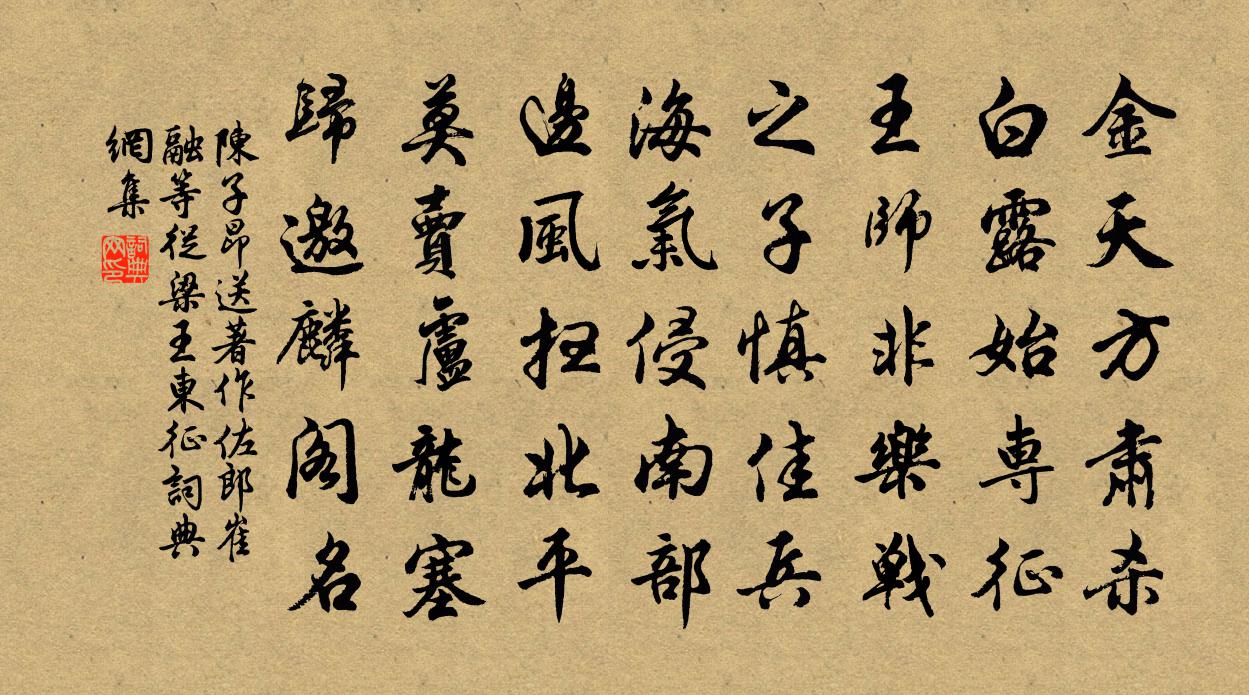 金天方肅杀
白露始専征
王師非樂戦
之子慎佳兵
海氣侵南部
邊風掃北平
莫賣盧龍塞
歸邀麟阁名
陳子昂送著作佐郎崔
融等從梁王東征詞典
網集
詞典网印